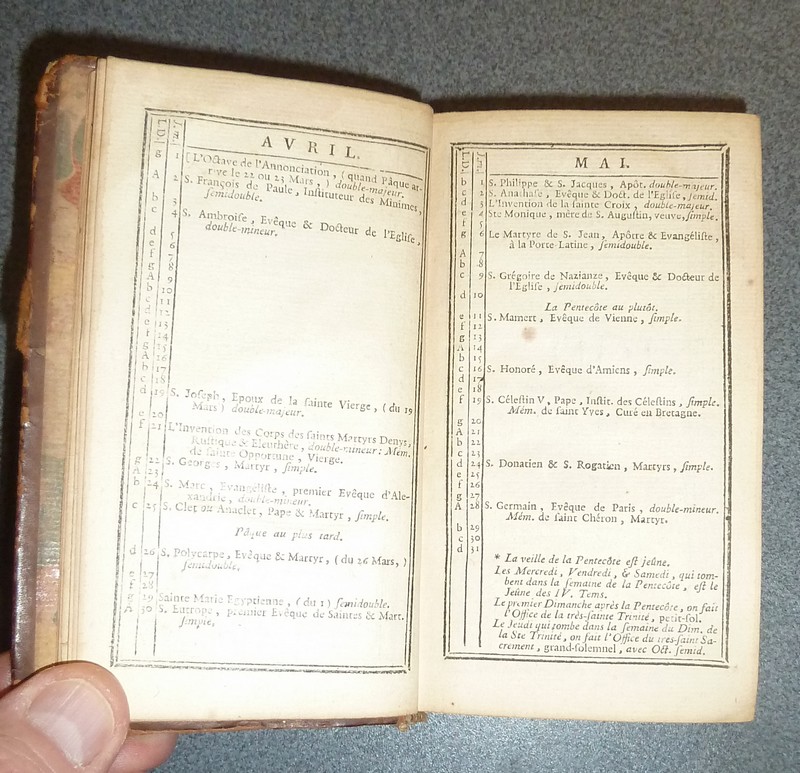 AVRIL.
L.D. J.M.
g 1 [L'Octave de l'Annonciation, (quand Pâque ar-
rive le 22 ou 23 Mars,) double-majeur.
A 2 S. François de Paule, Instituteur des Minimes,
semidouble.
b 3
c 4 S. Ambroise, Evêque & Docteur de l'Eglise,
double-mineur.
d 5
e 6
f 7
g 8
A 9
b 10
c 11
d 12
e 13
f 14
g 15
A 16
b 17
c 18
d 19 S. Joseph, Epoux de la sainte Vierge, (du 19
Mars) double-majeur.
e 20
f 21 L'Invention des Corps des saints Martyrs Denys,
Rustique & Eleuthère, double-mineur: Mém.
de sainte Opportune, Vierge.
g 22 S. Georges, Martyr, simple.
A 23
b 24 S. Marc, Evangéliste, premier Evêque d'Ale-
xandrie, double-mineur.
c 25 S. Clet ou Anaclet, Pape & Martyr, simple.
Pâque au plus tard.
d 26 S. Polycarpe, Evêque & Martyr, (du 26 Mars,)
semidouble.
e 27
f 28
g 29 Sainte Marie Egyptienne, (du 1) semidouble.
A 30 S. Eutrope, premier Evêque de Saintes & Mart.
simple,
MAI.
L.D. J.M.
b 1 S. Philippe & S. Jacques, Apôt. double-majeur.
c 2 S. Anathase, Evêque & Doct. de l'Eglise, semid.
d 3 L'Invention de la sainte Croix, double-majeur.
e 4 Ste Monique, mère de S. Augustin, veuve, simple.
f 5
g 6 Le Martyre de S. Jean, Apôtre & Evangéliste,
à la Porte-Latine, semidouble.
A 7
b 8
c 9 S. Grégoire de Nazianze, Evêque & Docteur de
l'Eglise, semidouble.
d 10
La Pentecôte au plutôt.
e 11 S. Mamert, Evêque de Vienne, simple.
f 12
g 13
A 14
b 15
c 16 S. Honoré, Evêque d'Amiens, simple.
d 17
e 18
f 19 S. Célestin V, Pape, Instit. des Célestins, simple.
Mém. de saint Yves, Curé en Bretagne.
g 20
A 21
b 22
c 23
d 24 S. Donatien & S. Rogatien, Martyrs, simple.
e 25
f 26
g 27
A 28 S. Germain, Evêque de Paris, double-mineur.
Mém. de saint Chéron, Martyr.
b 29
c 30
d 31
* La veille de la Pentecôte est jeûne.
Les Mercredi, Vendredi, & Samedi, qui tom-
bent dans la semaine de la Pentecôte, est le
Jeûne des IV. Tems.
Le premier Dimanche après la Pentecôte, on fait
l'Office de la très-sainte Trinité, petit-sol.
Le Jeudi qui tombe dans la semaine du Dim. de
la Ste Trinité, on fait l'Office du très-saint Sa-
crement, grand-solemnel, avec Oct. semid.